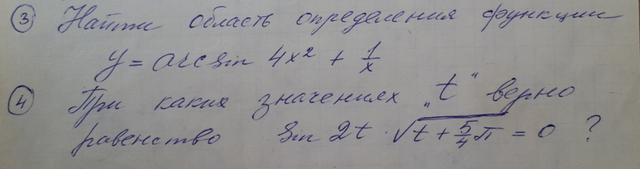 ③ Найти область определения функции
y = arcsin 4x² + 1/x
④ При каких значениях „t" верно
равенство sin 2t · √(t + 5/4 π) = 0 ?